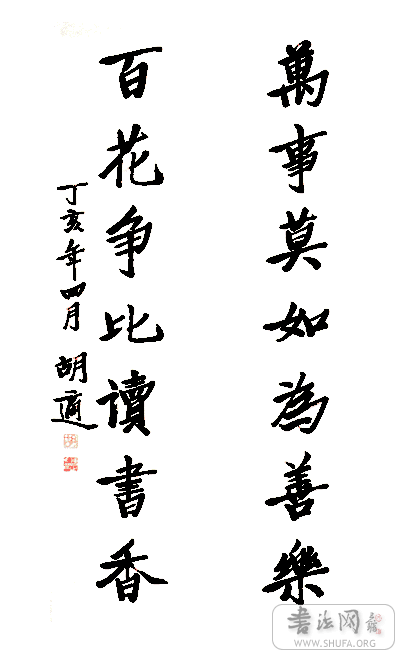 萬事莫如為善樂
百花争比讀書香
丁亥年四月 胡適
书法网
WWW.SHUFA.ORG